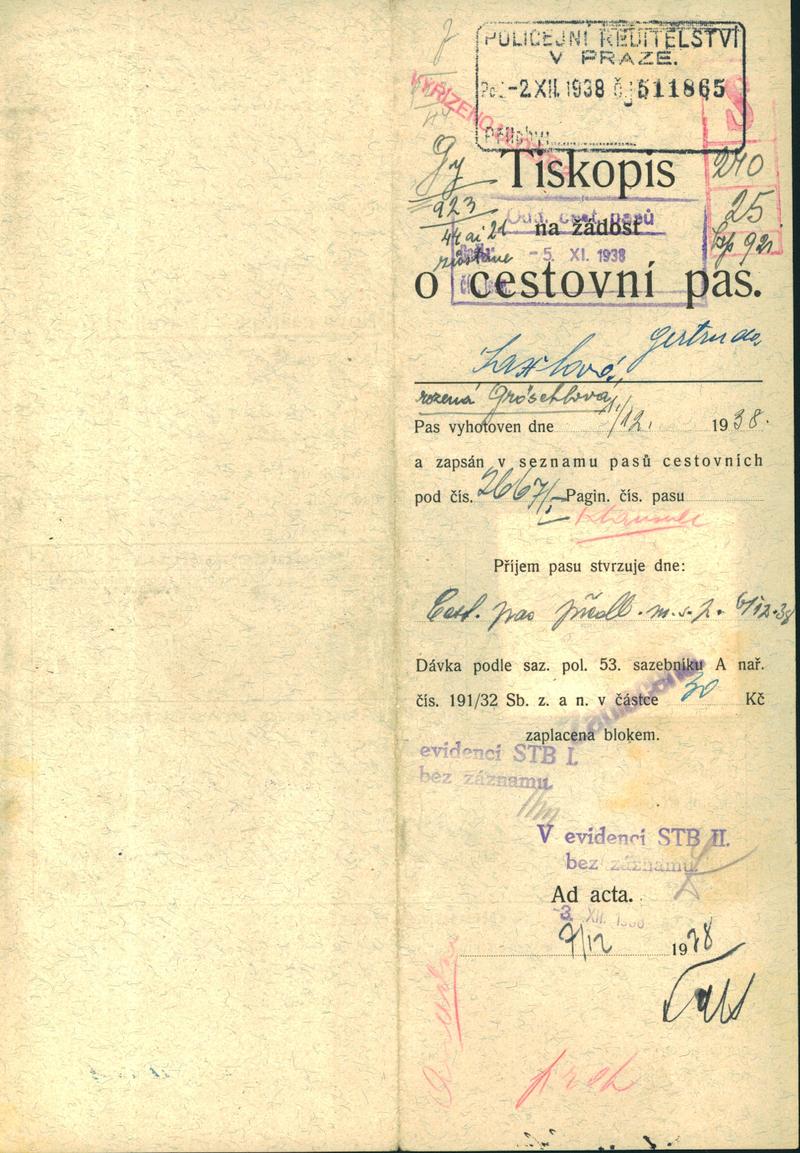 POLICEJNÍ ŘEDITELSTVÍ
V PRAZE.
-2.XII.1938 511865
Přílohy:
VYŘÍZENO
S
Tiskopis
240
923
Odd. cest. pasů
25
na žádost
44 ai 2d
-5. XI. 1938
o cestovní pas.
Gertruda
Laxlová,
rozená Gröschlová
Pas vyhotoven dne /12. 1938.
a zapsán v seznamu pasů cestovních
pod čís. 2667/ Pagin. čís. pasu
Příjem pasu stvrzuje dne:
Cest. pas předl. m. s. 2. 6/12.38
Dávka podle saz. pol. 53. sazebníku A nař.
čís. 191/32 Sb. z. a n. v částce 30 Kč
zaplacena blokem.
evidenci STB I.
bez záznamu.
V evidenci STB II.
bez záznamu.
Ad acta.
-3. XII. 1938
7/12 1938